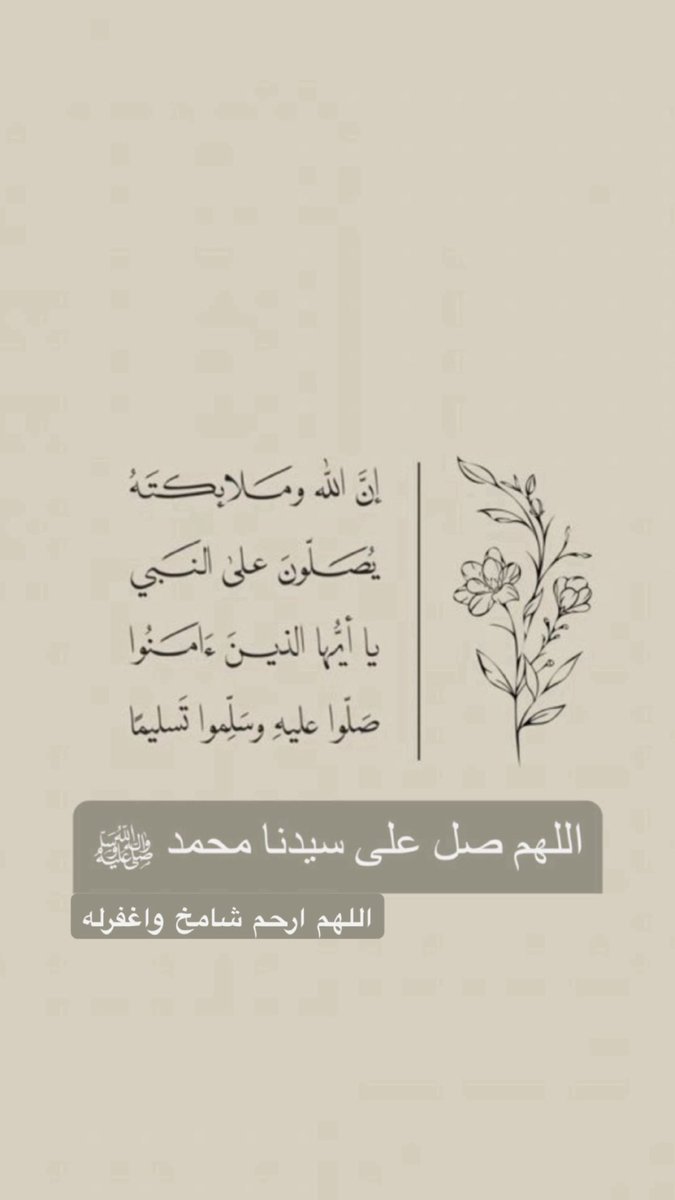 إنَّ اللّٰه ومَلايكتَهُ
يُصَلّونَ علىٰ النَبي
يا أيُّها الذينَ ءَامَنُوا
صَلّوا عليهِ وسَلِّموا تَسليمًا
اللهم صل على سيدنا محمد ﷺ
اللهم ارحم شامخ واغفرله